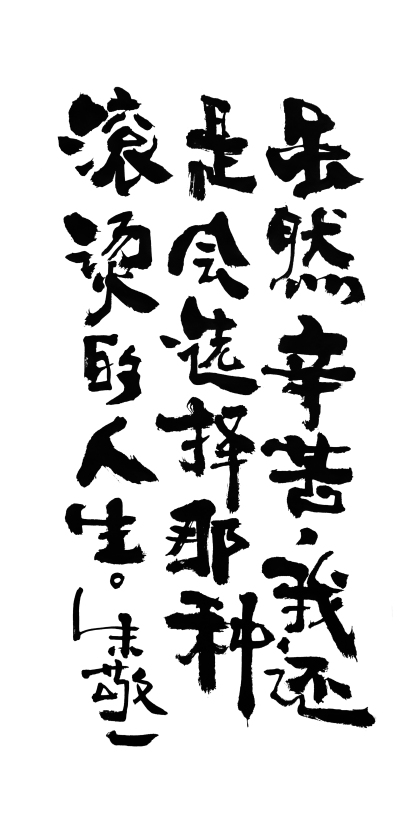 虽然辛苦，我还
是会选择那种
滚烫的人生。朱敬一